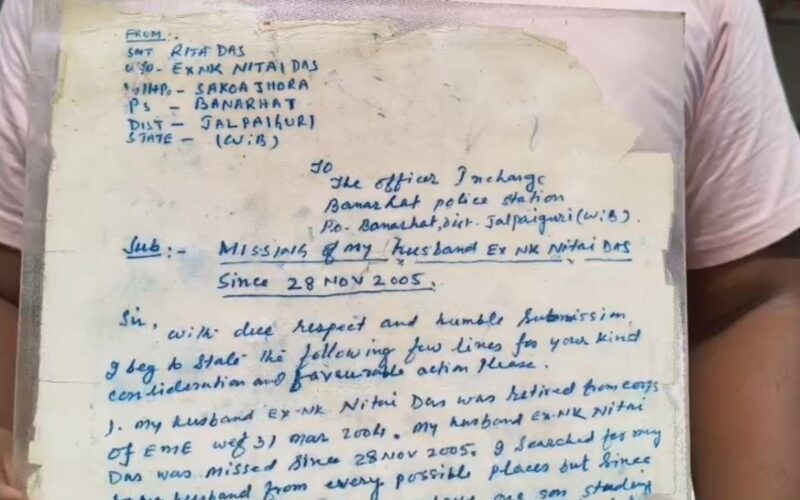 FROM:-
SMT RITA DAS
W/O- EX NK NITAI DAS
Vill+Po- SAKOAJHORA
PS - BANARHAT
DIST - JALPAIGURI
STATE - (W.B)
TO
The officer Incharge
Banarhat police station
P.o- Banarhat, Dist- Jalpaiguri (W.B).
Sub:- MISSING of my husband Ex NK Nitai DAS
Since 28 NOV 2005.
Sir,
with due respect and humble Submission
I beg to State the following few lines for your kind
consideration and favourable action Please.
1. My husband Ex-NK Nitai Das was retired from corps
of EME wef 31 Mar 2004. My husband Ex-NK Nitai
Das was missed Since 28 NOV 2005. I Searched for my
husband from every possible places but Since
one son studing